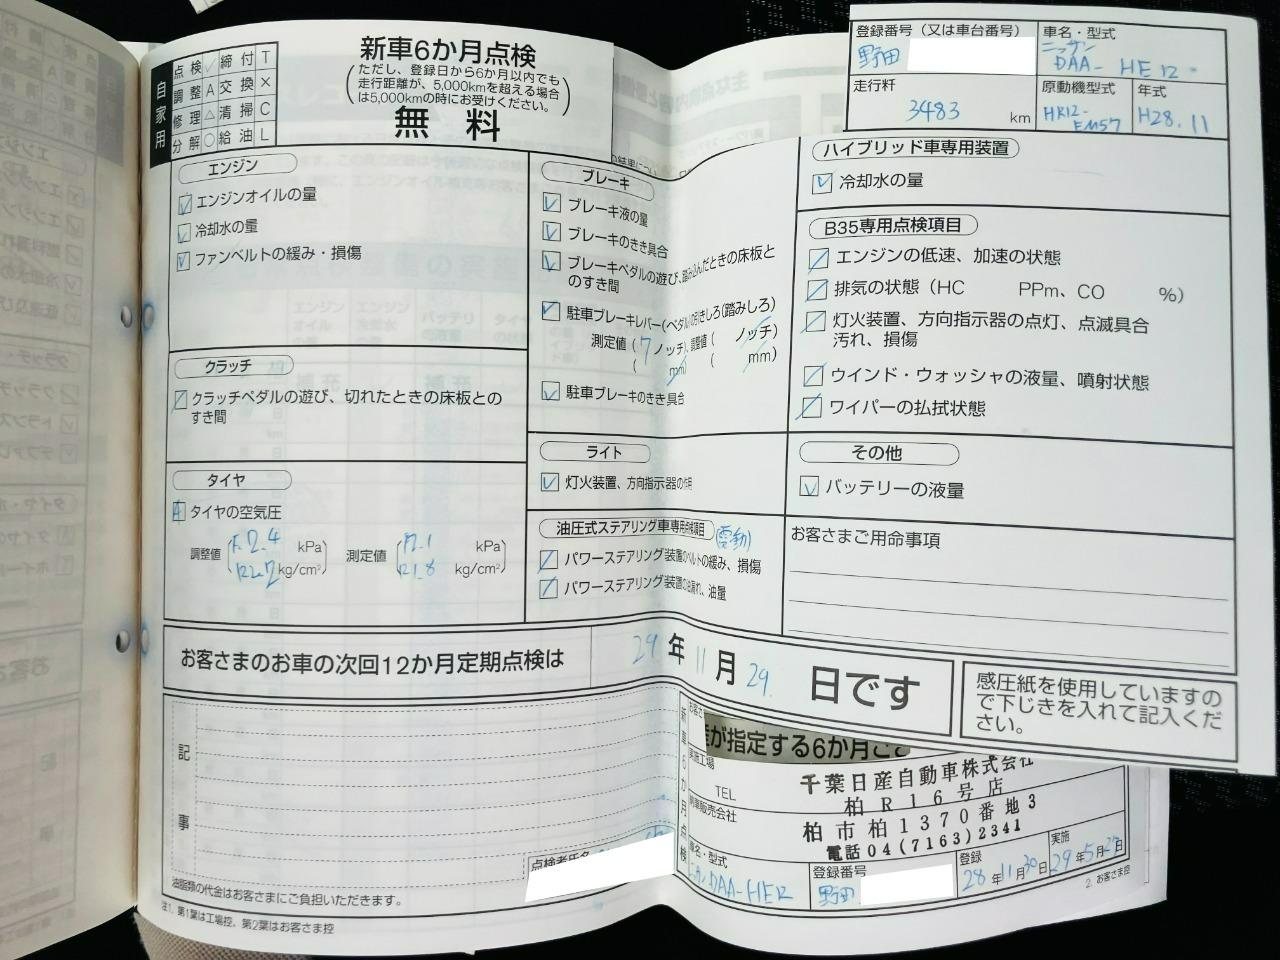 自家用
点検 ✓ 締付 T
調整 A 交換 ×
修理 △ 清掃 C
分解 ○ 給油 L
新車6か月点検
(ただし、登録日から6か月以内でも
走行距離が、5,000kmを超える場合
は5,000kmの時にお受けください。)
無料
登録番号（又は車台番号）
野田
車名・型式
ニッサン
DAA-HE12
走行粁
3483 km
原動機型式
HR12-
EM57
年式
H28.11
エンジン
エンジンオイルの量
冷却水の量
ファンベルトの緩み・損傷
クラッチ
クラッチペダルの遊び、切れたときの床板との
すき間
タイヤ
A タイヤの空気圧
調整値 F2.4 kPa 測定値 F2.1 kPa
R2.2 kg/cm² R1.8 kg/cm²
ブレーキ
ブレーキ液の量
ブレーキのきき具合
ブレーキペダルの遊び、踏み込んだときの床板と
のすき間
駐車ブレーキレバー(ペダル)の引きしろ(踏みしろ)
測定値 ( 7 ノッチ)、調整値 ( ノッチ)
( mm) ( mm)
駐車ブレーキのきき具合
ライト
灯火装置、方向指示器の作用
油圧式ステアリング車専用点検項目
(電動)
パワーステアリング装置のベルトの緩み、損傷
パワーステアリング装置の油漏れ、油量
ハイブリッド車専用装置
冷却水の量
B35専用点検項目
エンジンの低速、加速の状態
排気の状態（HC PPm、CO %）
灯火装置、方向指示器の点灯、点滅具合
汚れ、損傷
ウインド・ウォッシャの液量、噴射状態
ワイパーの払拭状態
その他
バッテリーの液量
お客さまご用命事項
お客さまのお車の次回12か月定期点検は 29 年 11 月 29 日です
感圧紙を使用していますの
で下じきを入れて記入くだ
さい。
記事
点検者氏名
油脂類の代金はお客さまにご負担いただきます。
注1. 第1葉は工場控、第2葉はお客さま控
新車6か月点検
が指定する6か月ごと
実施工場
TEL
千葉日産自動車株式会社
柏R16号店
柏市柏1370番地3
電話04(7163)2341
車名・型式
DAA-HE12
登録番号
野田
登録
28年11月30日
実施
29年5月27日
2. お客さま控